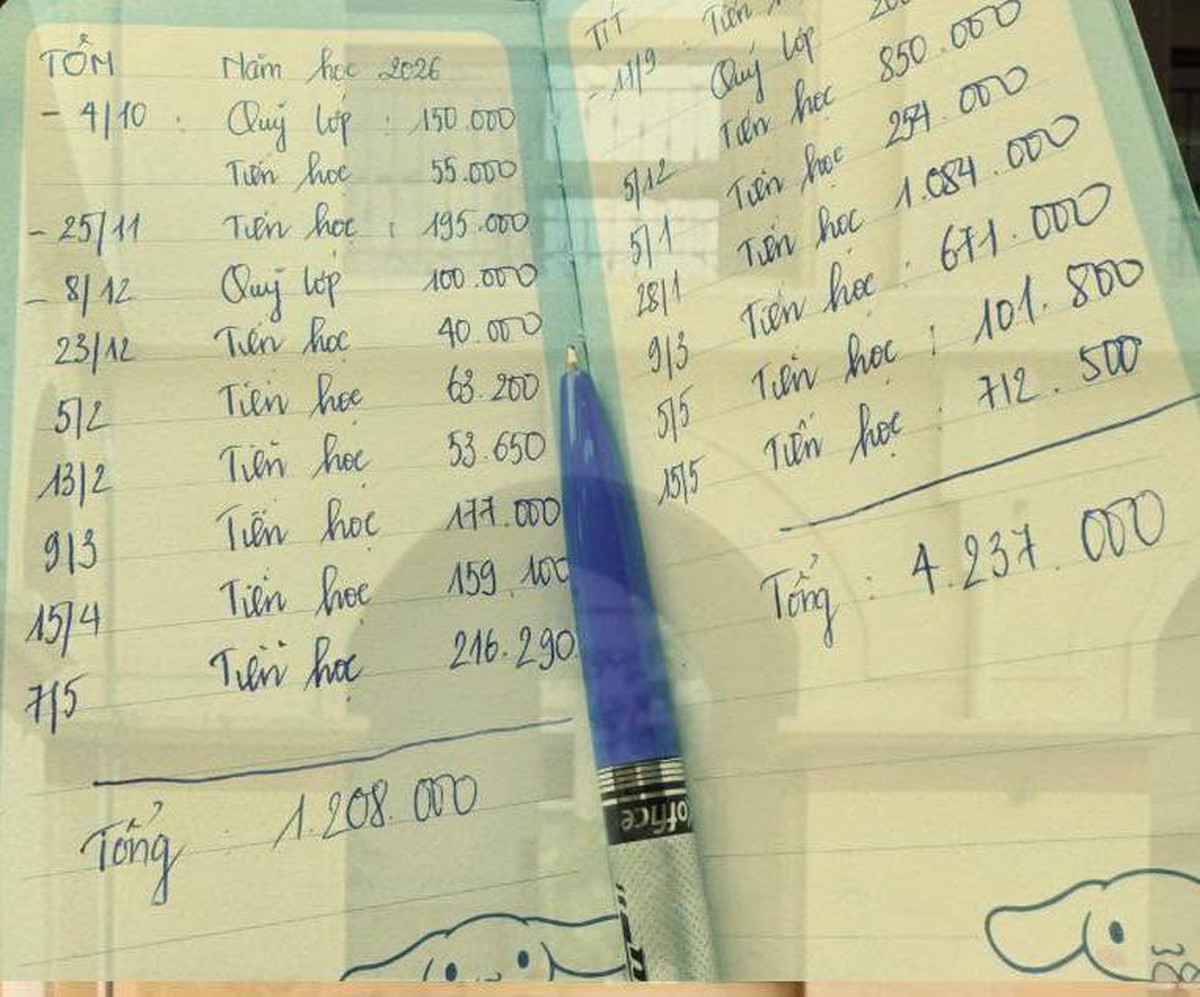 TỒM Năm học 2026
- 4/10 : Quỹ lớp : 150.000
Tiền học 55.000
- 25/11 Tiền học : 195.000
- 8/12 Quỹ lớp 100.000
23/12 Tiền học 40.000
5/2 Tiền học 63.200
13/2 Tiền học 53.650
9/3 Tiền học 177.000
15/4 Tiền học 159.100
7/5 Tiền học 216.290
Tổng : 1.208.000
TÍT
- 11/9 : Tiền
Quỹ lớp
5/12 Tiền học 850.000
5/1 Tiền học 254.000
28/1 Tiền học 1.084.000
9/3 Tiền học : 671.000
5/5 Tiền học : 101.800
15/5 Tiền học : 712.500
Tổng : 4.237.000
office
38